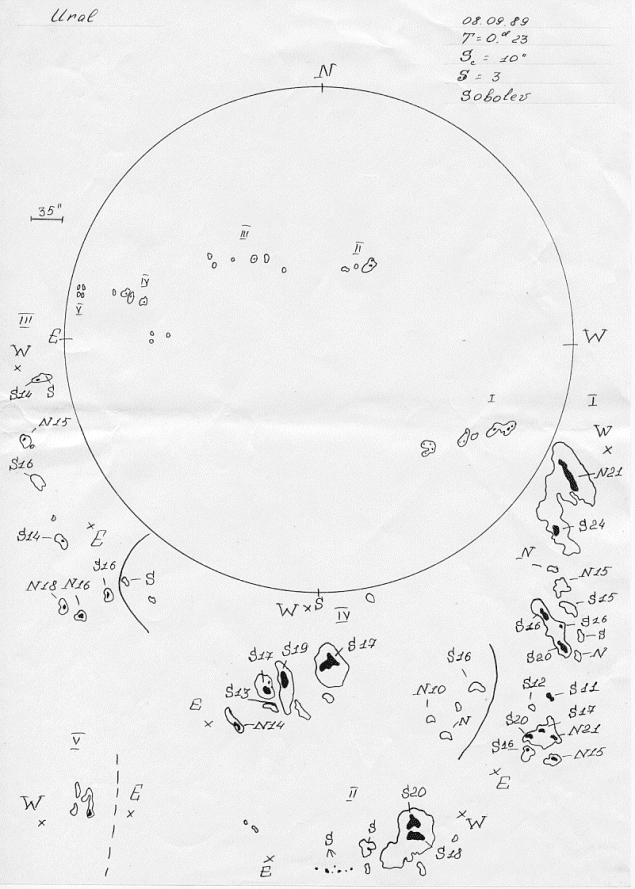 Ural
08.09.89
T = 0.ᵈ 23
S = 3
Sobolev
N
35"
III
II
IV
V
III
E
W
W
S14 S
I
I
W
N15
N21
S16
S24
S14
E
N
N15
S16
S
S15
N18 N16
S16
S16
S
W S
IV
S20
N
S17 S19
S17
S16
S13
N10
S12
S11
E
N14
N
S17
S20
N21
S16
N15
V
E
W
E
II
S20
W
S
S
S18
E